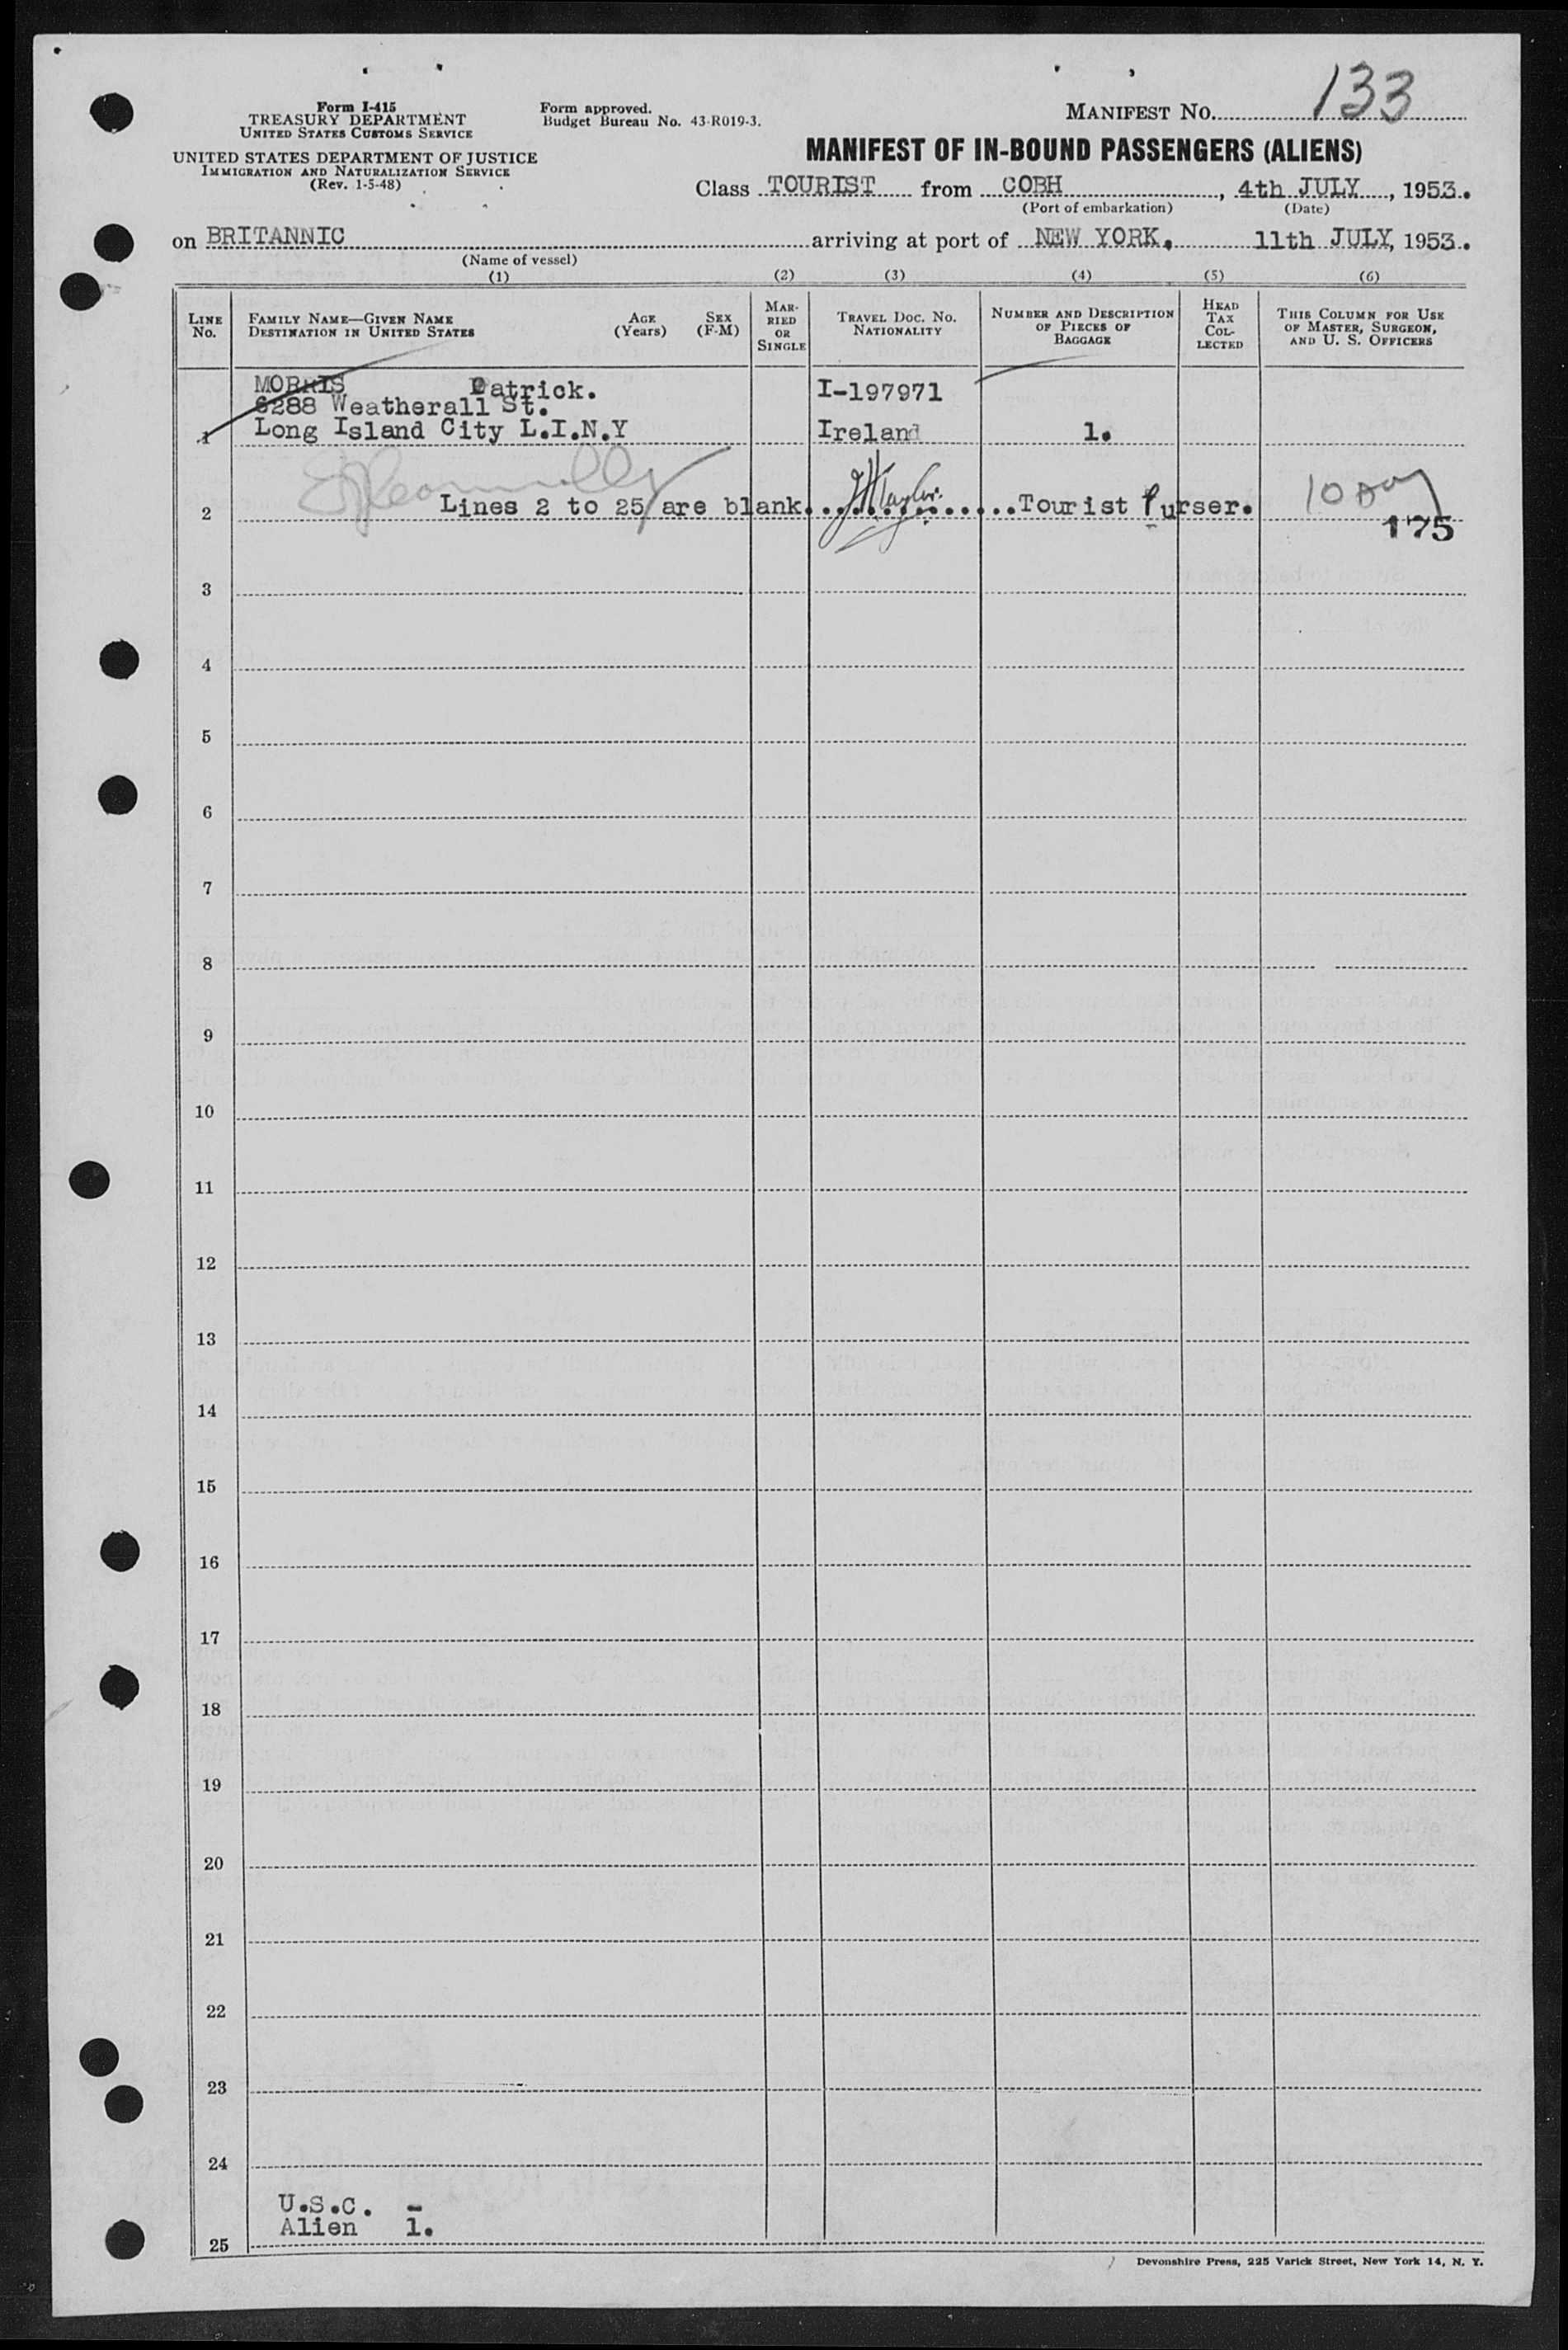 Form I-415
TREASURY DEPARTMENT
UNITED STATES CUSTOMS SERVICE
UNITED STATES DEPARTMENT OF JUSTICE
IMMIGRATION AND NATURALIZATION SERVICE
(Rev. 1-5-48)
Form approved.
Budget Bureau No. 43-R019-3.
MANIFEST NO. 133
MANIFEST OF IN-BOUND PASSENGERS (ALIENS)
Class TOURIST from COBH, 4th JULY, 1953.
(Port of embarkation) (Date)
on BRITANNIC arriving at port of NEW YORK. 11th JULY, 1953.
(Name of vessel)
(1) (2) (3) (4) (5) (6)
LINE NO.
FAMILY NAME—GIVEN NAME
DESTINATION IN UNITED STATES
AGE (Years)
SEX (F-M)
MARRIED OR SINGLE
TRAVEL DOC. NO.
NATIONALITY
NUMBER AND DESCRIPTION OF PIECES OF BAGGAGE
HEAD TAX COLLECTED
THIS COLUMN FOR USE OF MASTER, SURGEON, AND U. S. OFFICERS
MORRIS Patrick. I-197971
6288 Weatherall St.
1 Long Island City L.I.N.Y Ireland 1.
2 Lines 2 to 25 are blank. Tourist Purser. 10
175
3
4
5
6
7
8
9
10
11
12
13
14
15
16
17
18
19
20
21
22
23
24
U.S.C. -
Alien 1.
25
Devonshire Press, 225 Varick Street, New York 14, N. Y.